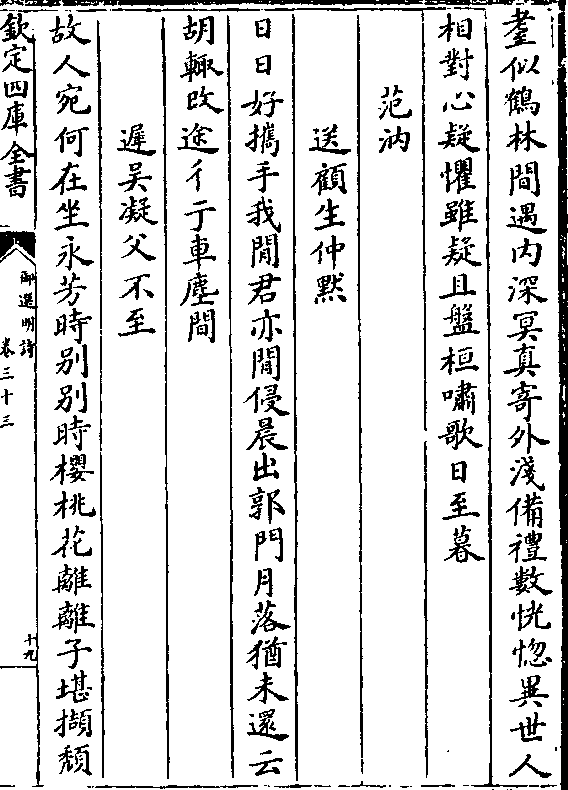 耋似鶴林間遇内深冥真寄外淺備禮數恍惚異世人
相對心疑懼雖疑且盤桓嘯歌日至暮
范汭
送顧生仲默
日日好攜手我閒君亦閒侵晨出郭門月落猶未還云
胡輙改途彳亍車塵間
遲吴凝父不至
故人宛何在坐永芳時别别時櫻桃花離離子堪擷頽
欽定四庫全書
御選明詩
卷三十三
十九